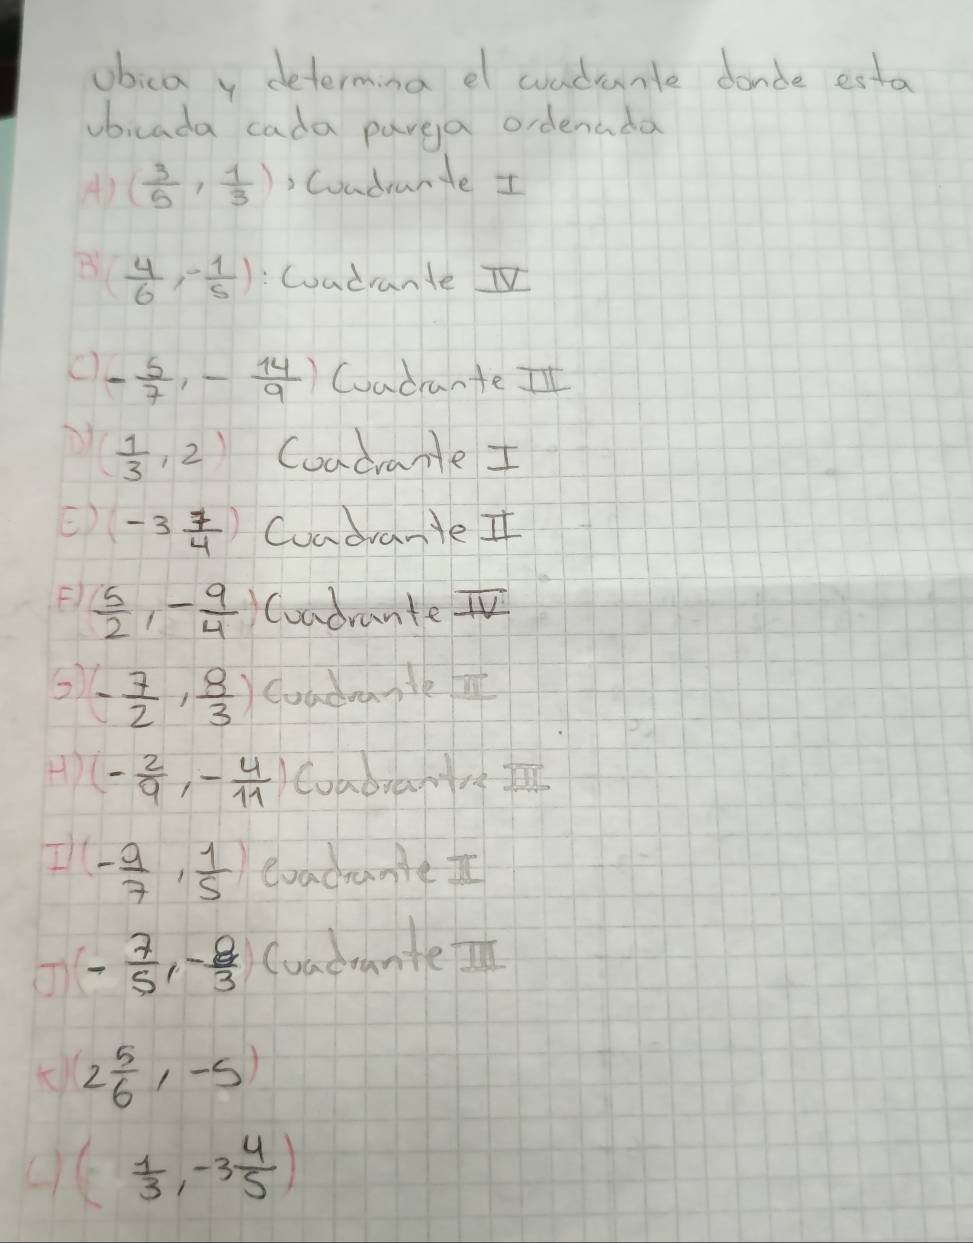 Ubica y determina el cuadrante donde esta
ubicada cada pareja ordenada
A) (3/5, 1/3), Cuadrante I
B) (4/6, -1/5): Cuadrante IV
C) -5/7, -14/9) Cuadrante III
D) (1/3, 2) Cuadrante I
E) (-3 7/4) Cuadrante II
F) (5/2, -9/4) Cuadrante IV
G) (-7/2, 8/3) Cuadrante II
H) (-2/9, -4/11) Cuadrante III
I) (-9/7, 1/5) Cuadrante II
J) (-7/5, -8/3) Cuadrante III
K) (2 5/6, -5)
L) (1/3, -3 4/5)